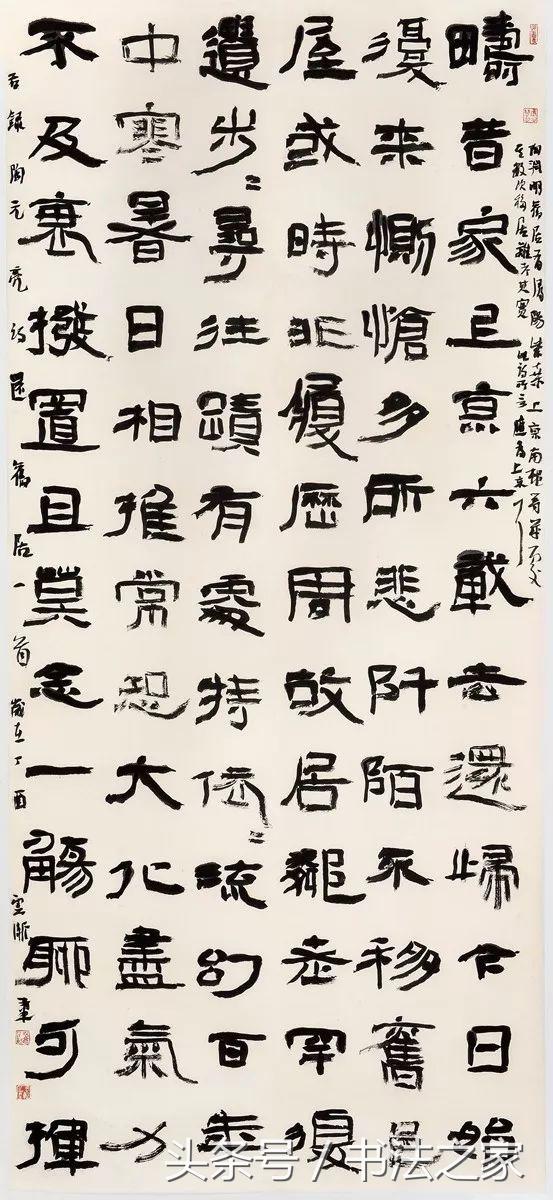 疇昔家上京六載去還歸今日始
復来惻愴多所悲阡陌不移舊邑
屋或時非履歷周故居鄰老罕復
遺步〻尋往蹟有處特依〻流幻百年
中寒暑日相推常恐大化盡氣力
不及衰撥置且莫念一觴聊可揮
陶淵明舊居有潯陽柴桑上京南村等
此詩所言應為上京
右録陶元亮詩還舊居一首 歲在丁酉
头条号 / 书法之家